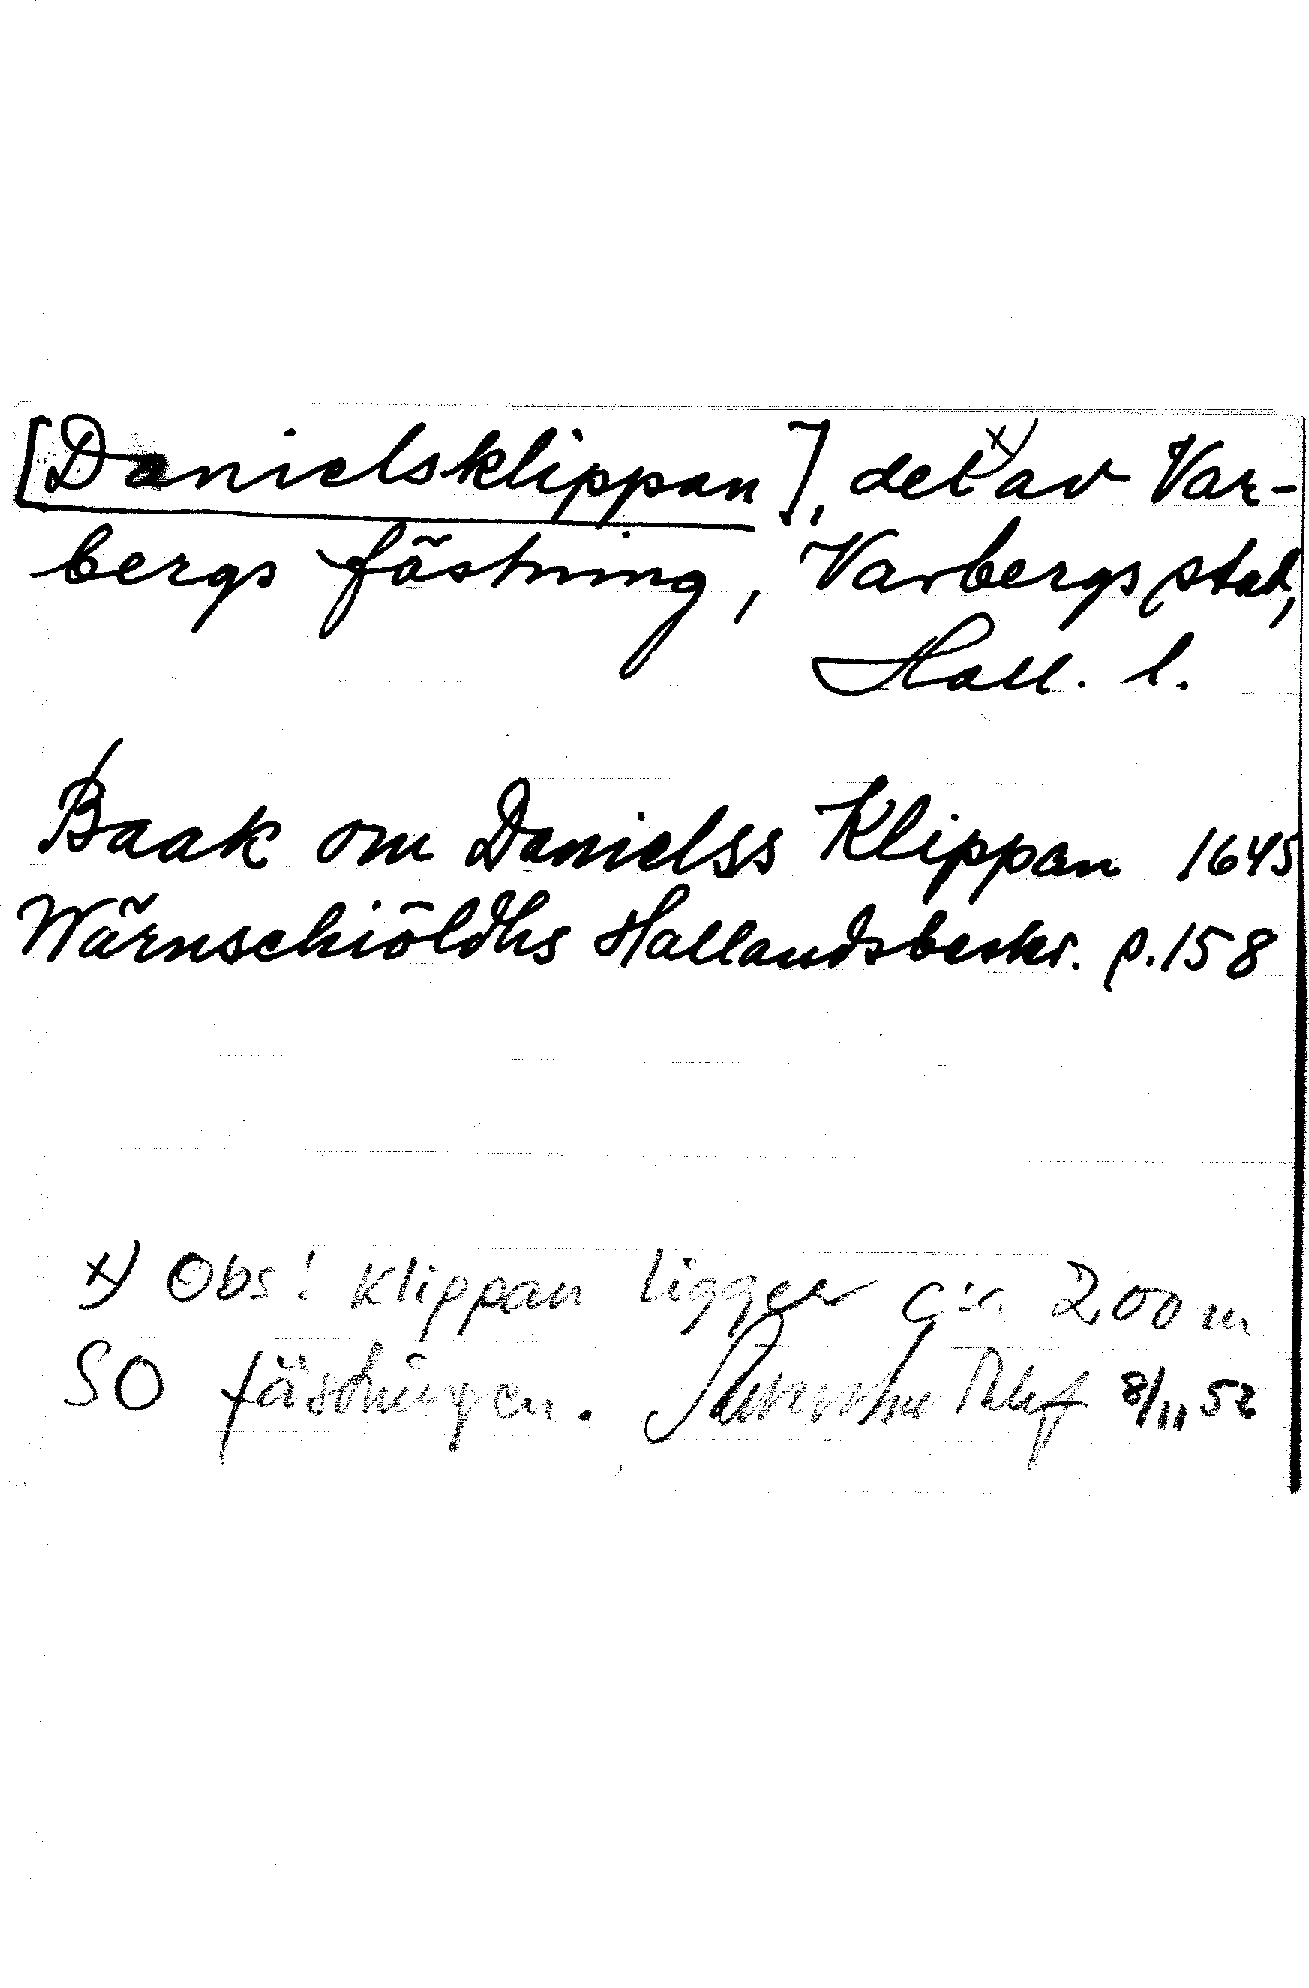 [Danielsklippan], del x) av Var-
bergs fästning, Varbergs stad,
Hall. l.
Baak om Danielss Klippan 1645
Wärnschiöldhs Hallandsbeskr. p. 158
x) Obs! klippan ligger c:a 200 m
SO fästningen. 8/11 52